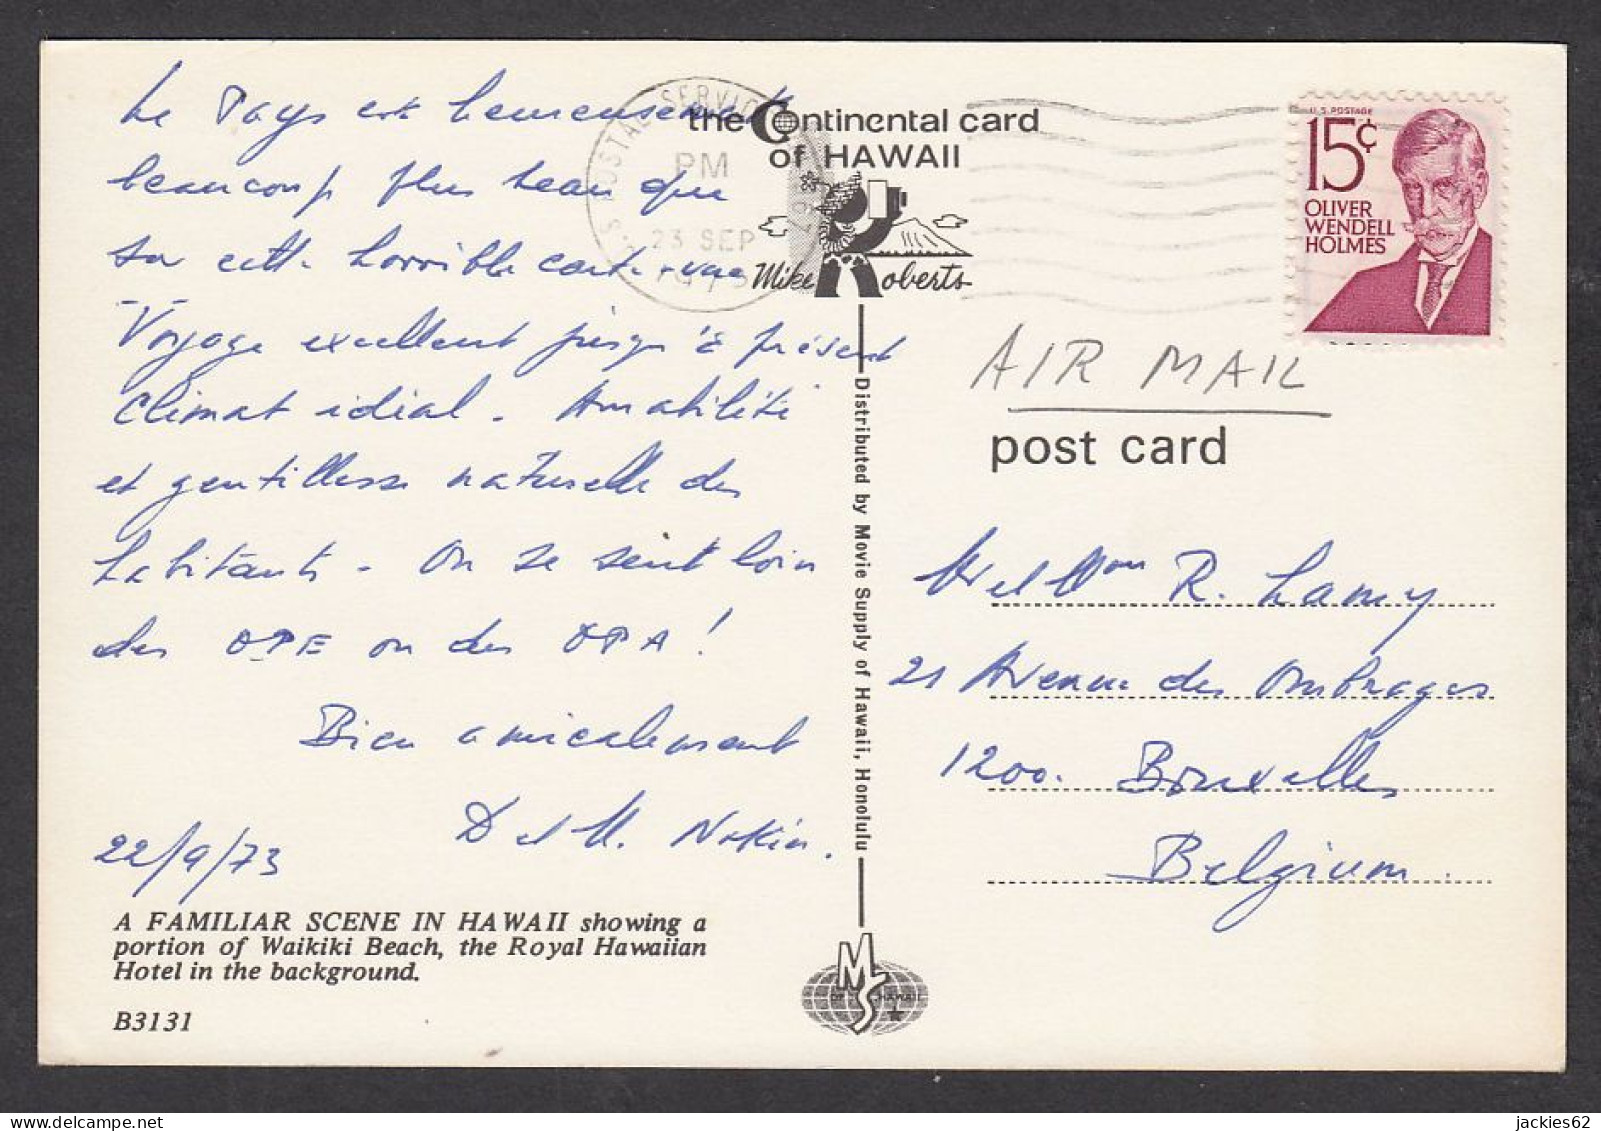 Le Pays est heureusement
beaucoup plus beau que
sur cette horrible carte-vue
Voyage excellent jusqu'à présent
Climat idéal. Amabilité
et gentillesse naturelle des
habitants - On se sent loin
des OPE ou des OPA!
Bien amicalement
D et M. Nokin.
22/9/73
A FAMILIAR SCENE IN HAWAII showing a
portion of Waikiki Beach, the Royal Hawaiian
Hotel in the background.
B3131
U.S. POSTAL SERVICE
PM
23 SEP
1973
the Continental card
of HAWAII
Mike Roberts
Distributed by Movie Supply of Hawaii, Honolulu
MS
OF HAWAII
U.S. POSTAGE
15¢
OLIVER
WENDELL
HOLMES
AIR MAIL
post card
M et Mme R. Lamy
21 Avenue des Ombrages
1200. Bruxelles
Belgium.
jackies62